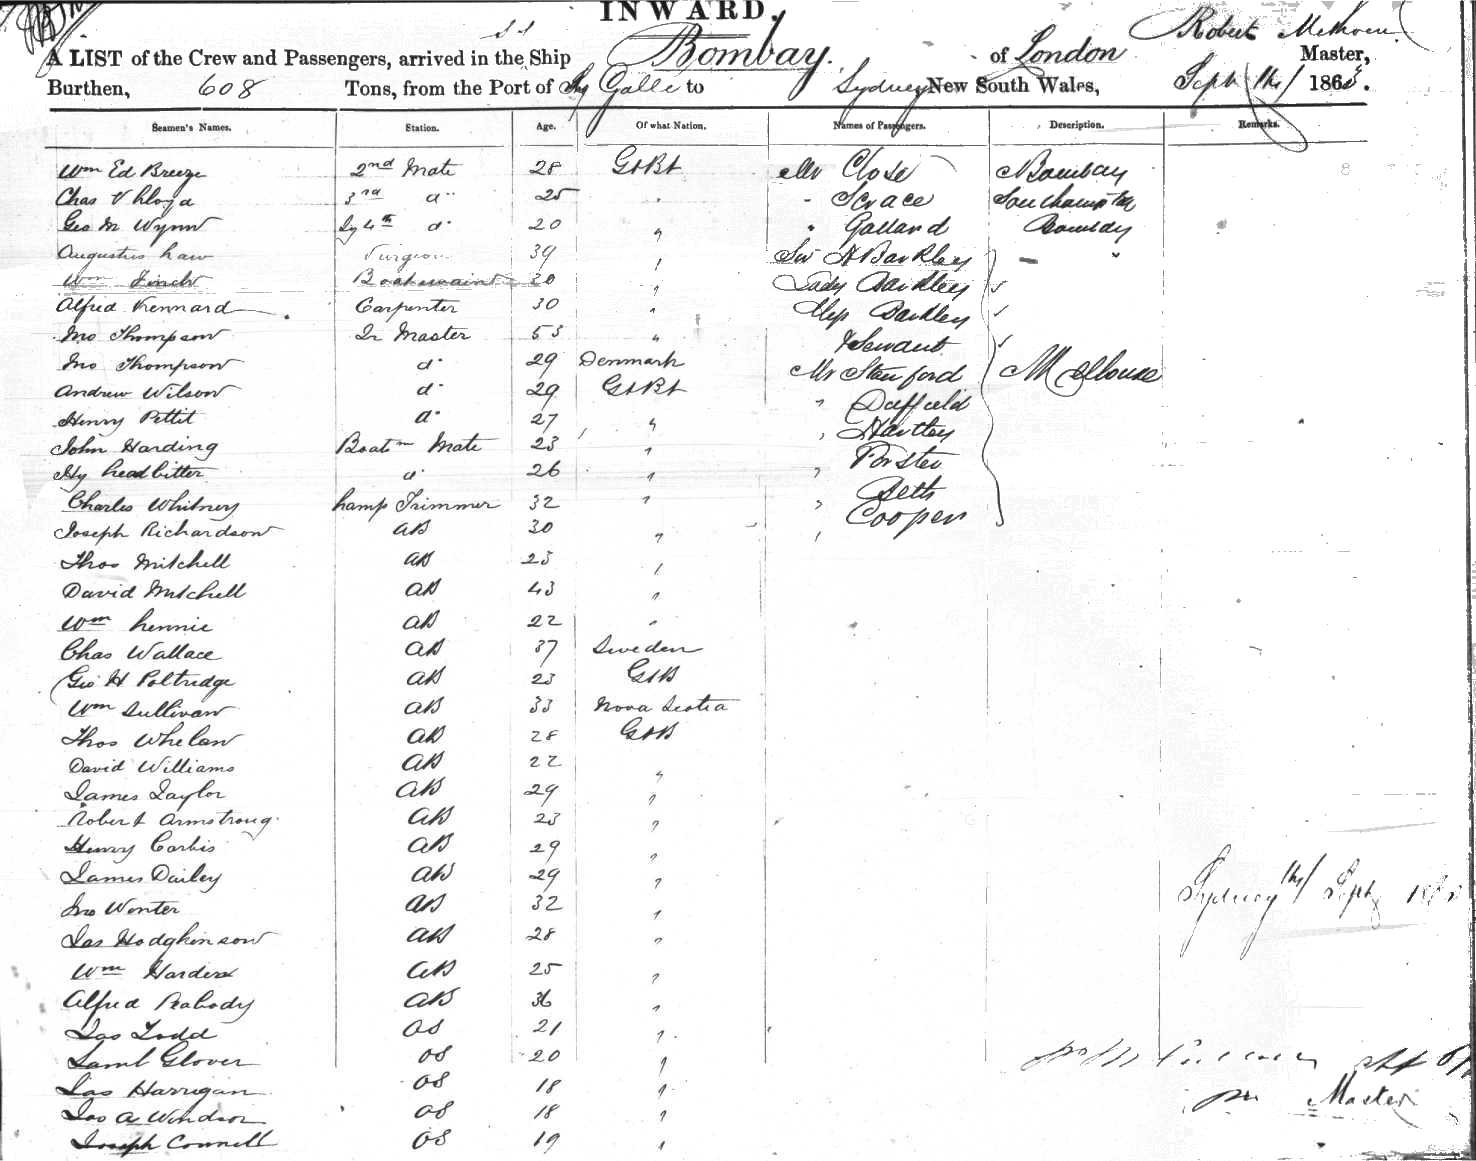 INWARD.
S.S.
A LIST of the Crew and Passengers, arrived in the Ship Bombay. of London Robert Methven Master,
Burthen, 608 Tons, from the Port of Galle to Sydney New South Wales, Sept 1863.
Seamen's Names. Station. Age. Of what Nation. Names of Passengers. Description. Remarks.
Wm Ed Breeze 2nd Mate 28 Gt Bt Mr Close Bombay
Chas V Lloyd 3rd do 25 " " Scrace Southampton
Geo M Wynn 4th do 20 " " Galland Bombay
Augustus Law Surgeon 39 " Sir H Barkley "
Wm Finch Boatswain 30 " Lady Barkley
Alfred Kennard Carpenter 30 " Barkley
Jno Thompson Qr Master 53 " Servant
Jno Thompson do 29 Denmark Mr Stanford Melbourne
Andrew Wilson do 29 Gt Bt " Duffield
Henry Pettit do 27 " " Hartley
John Harding Boatsn Mate 23 " Porster
Hy Leadbitter do 26 " " Betts
Charles Whitney Lamp Trimmer 32 " " Cooper
Joseph Richardson AB 30 "
Thos Mitchell AB 23 "
David Mitchell AB 43 "
Wm Lennie AB 22 "
Chas Wallace AB 37 Sweden
Geo H Poltridge AB 23 Gt B
Wm Sullivan AB 33 Nova Scotia
Thos Whelan AB 28 Gt B
David Williams AB 22 "
James Taylor AB 29 "
Robert Armstrong AB 23 "
Henry Corbis AB 29 "
James Dailey AB 29 "
Sydney Sept
Jno Winter AB 32 "
Jas Hodgkinson AB 28 "
Wm Harding AB 25 "
Alfred Peabody AB 36 "
Jas Todd OS 21 "
Saml Glover OS 20 "
Jas Harrigan OS 18 "
Master
Jas A Windsor OS 18 "
Joseph Connell OS 19 "